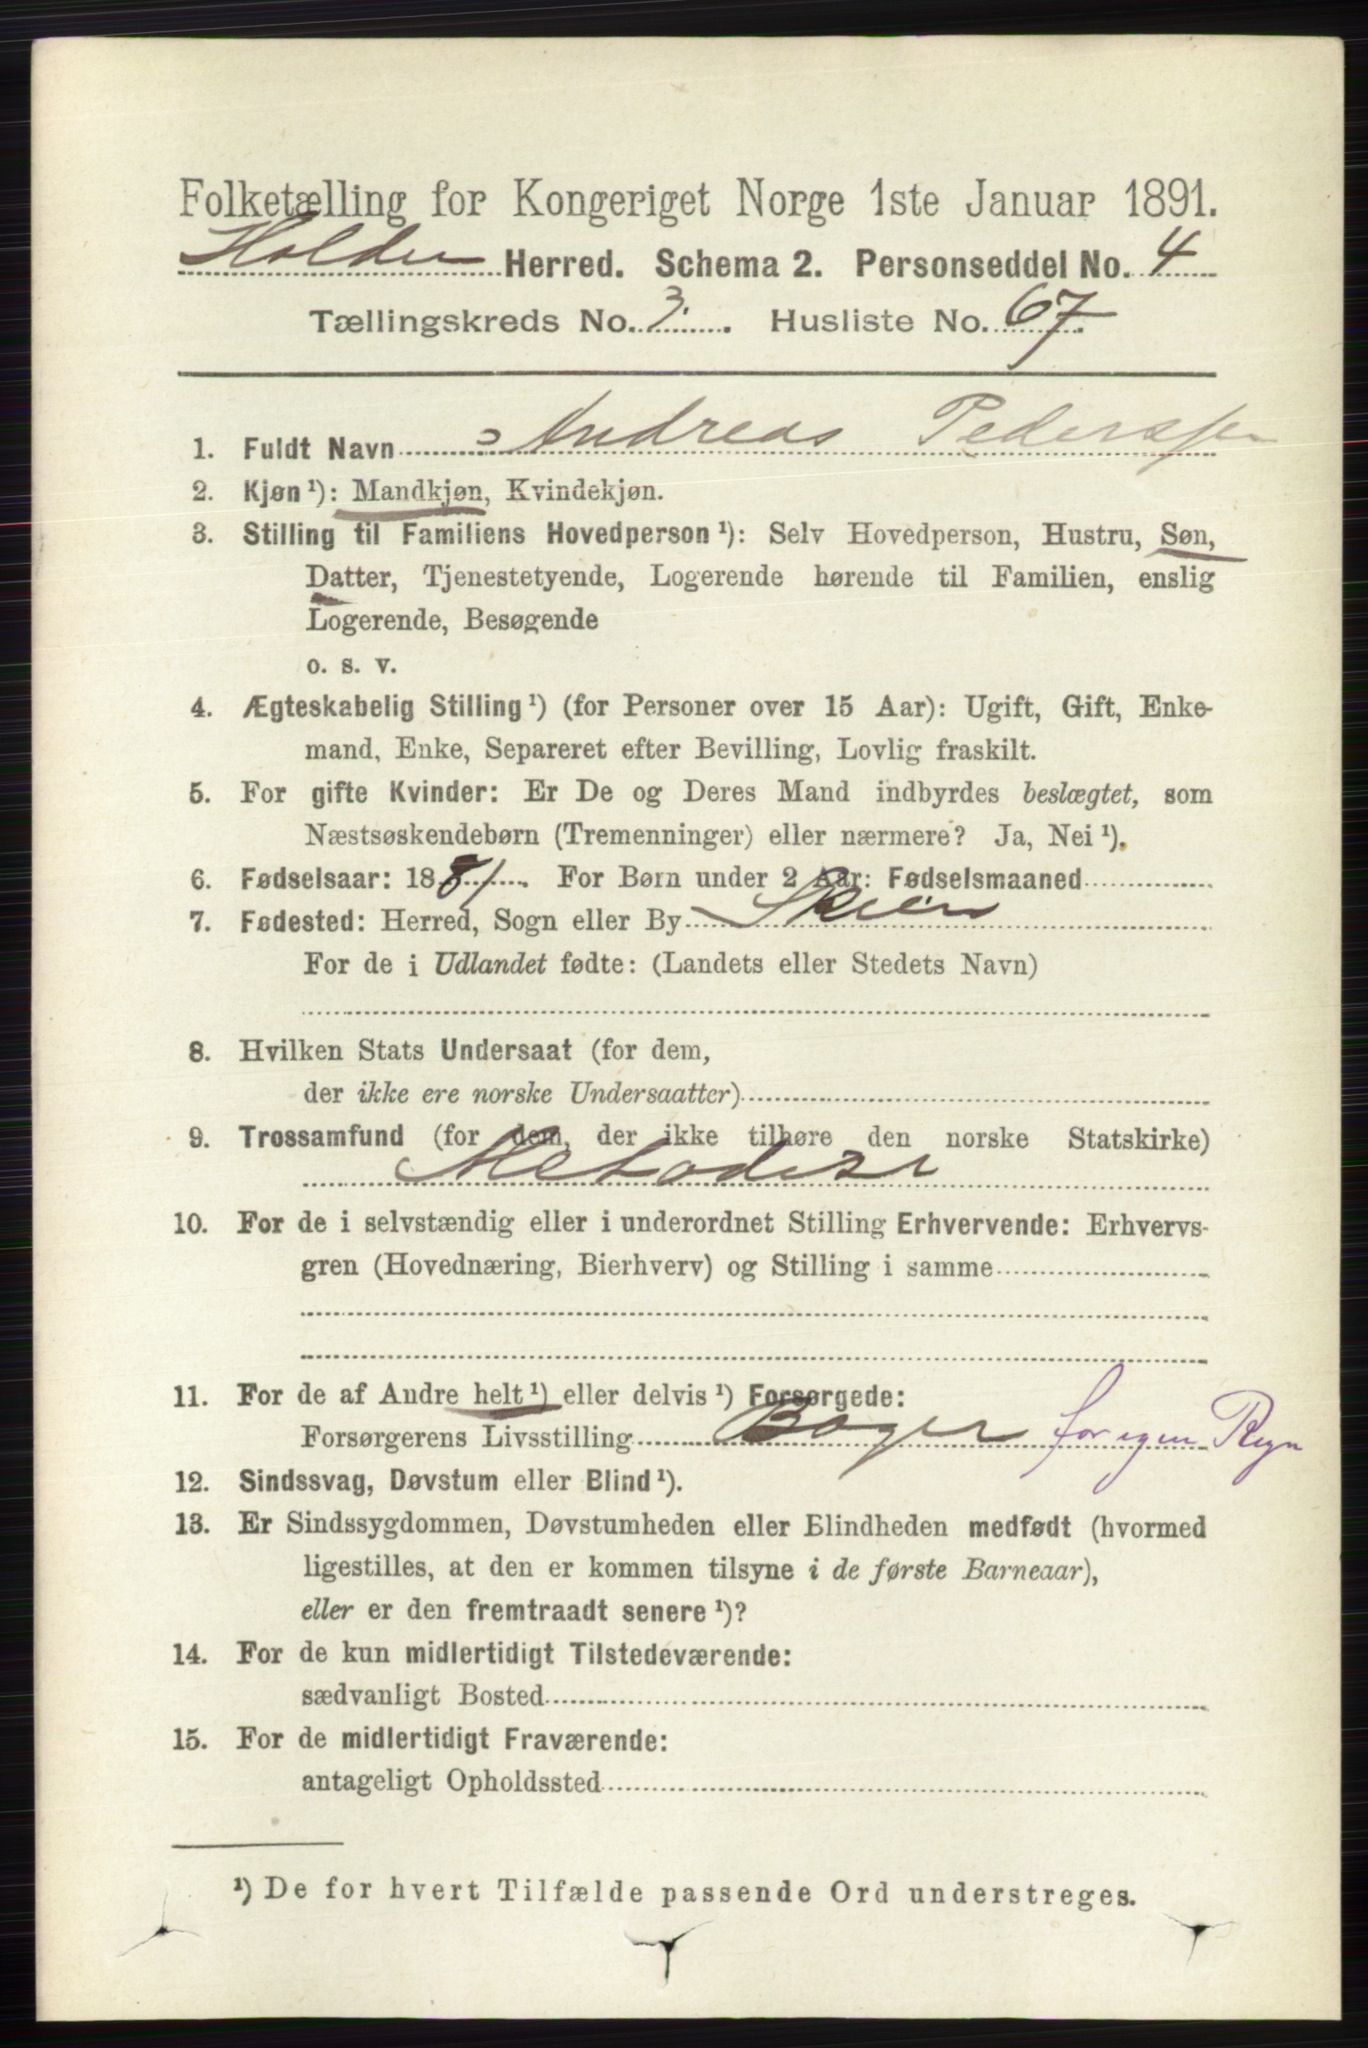 Folketælling for Kongeriget Norge 1ste Januar 1891.
Holden Herred. Schema 2. Personseddel No. 4
Tællingskreds No. 3. Husliste No. 67.
1. Fuldt Navn Andreas Pederssen
2. Kjøn ¹): Mandkjøn, Kvindekjøn.
3. Stilling til Familiens Hovedperson ¹): Selv Hovedperson, Hustru, Søn,
Datter, Tjenestetyende, Logerende hørende til Familien, enslig
Logerende, Besøgende
o. s. v.
4. Ægteskabelig Stilling ¹) (for Personer over 15 Aar): Ugift, Gift, Enke-
mand, Enke, Separeret efter Bevilling, Lovlig fraskilt.
5. For gifte Kvinder: Er De og Deres Mand indbyrdes beslægtet, som
Næstsøskendebørn (Tremenninger) eller nærmere? Ja, Nei ¹).
6. Fødselsaar: 1881. For Børn under 2 Aar: Fødselsmaaned
7. Fødested: Herred, Sogn eller By Skien
For de i Udlandet fødte: (Landets eller Stedets Navn)
8. Hvilken Stats Undersaat (for dem,
der ikke ere norske Undersaatter)
9. Trossamfund (for dem, der ikke tilhøre den norske Statskirke)
Metodist
10. For de i selvstændig eller i underordnet Stilling Erhvervende: Erhvervs-
gren (Hovednæring, Bierhverv) og Stilling i samme
11. For de af Andre helt ¹) eller delvis ¹) Forsørgede:
Forsørgerens Livsstilling Bager for egen Regn
12. Sindssvag, Døvstum eller Blind ¹).
13. Er Sindssygdommen, Døvstumheden eller Blindheden medfødt (hvormed
ligestilles, at den er kommen tilsyne i de første Barneaar),
eller er den fremtraadt senere ¹)?
14. For de kun midlertidigt Tilstedeværende:
sædvanligt Bosted
15. For de midlertidigt Fraværende:
antageligt Opholdssted
¹) De for hvert Tilfælde passende Ord understreges.